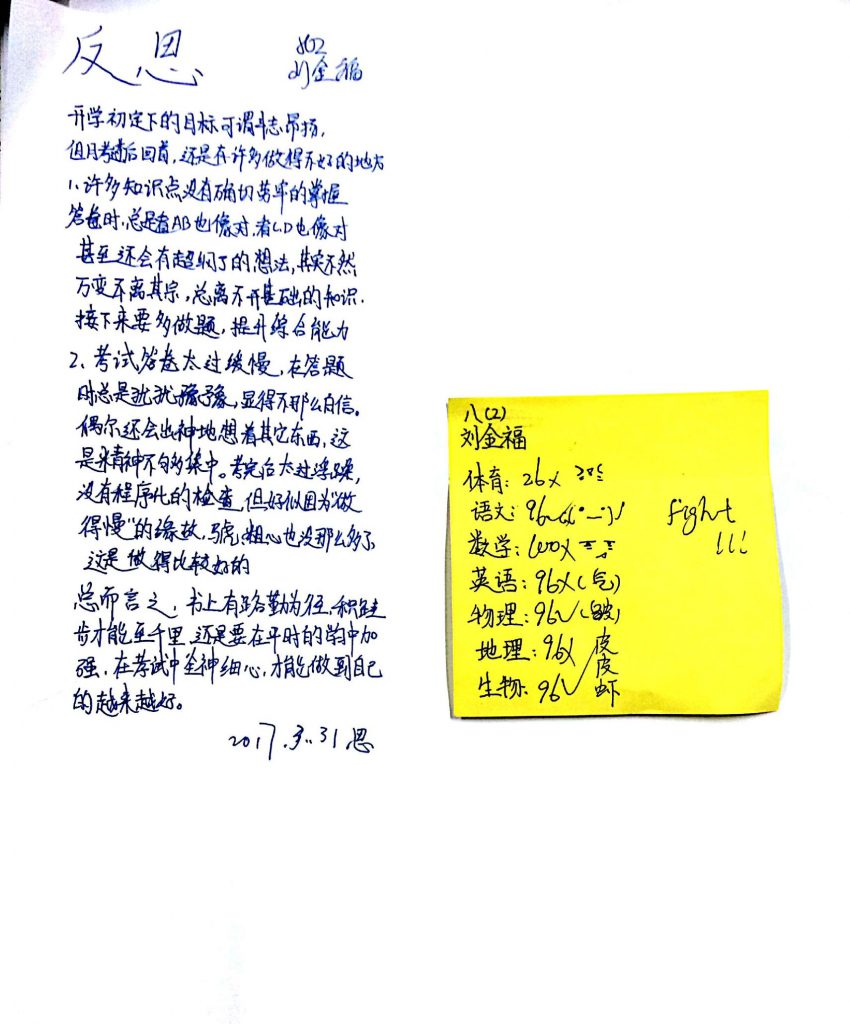 反思
802
刘金福
开学初定下的目标可谓斗志昂扬,
但月考过后回首,还是有许多做得不好的地方
1、许多知识点没有确切劳牢的掌握
答卷时,总是看AB也像对,看CD也像对
甚至还会有超纲了的想法,其实不然
万变不离其宗,总离不开基础的知识.
接下来要多做题,提升综合能力
2、考试答卷太过缓慢,在答题
时总是犹犹豫豫,显得不那么自信。
偶尔还会出神地想着其它东西,这
是精神不够集中。考完后太过浮躁,
没有程序化的检查,但好似因为"做
得慢"的缘故,马虎、粗心也没那么多了
这是做得比较好的
总而言之,书上有路勤为径,积跬
步才能至千里,还是要在平时的学中加
强,在考试中全神细心,才能做到自己
的越来越好。
2017.3.31 思
八(2)
刘金福
体育: 26X
语文: 96
数学: 100X
英语: 96X(气)
物理: 96√(皱)
地理: 96X
生物: 96√
皮
皮
虾
fight
!!!